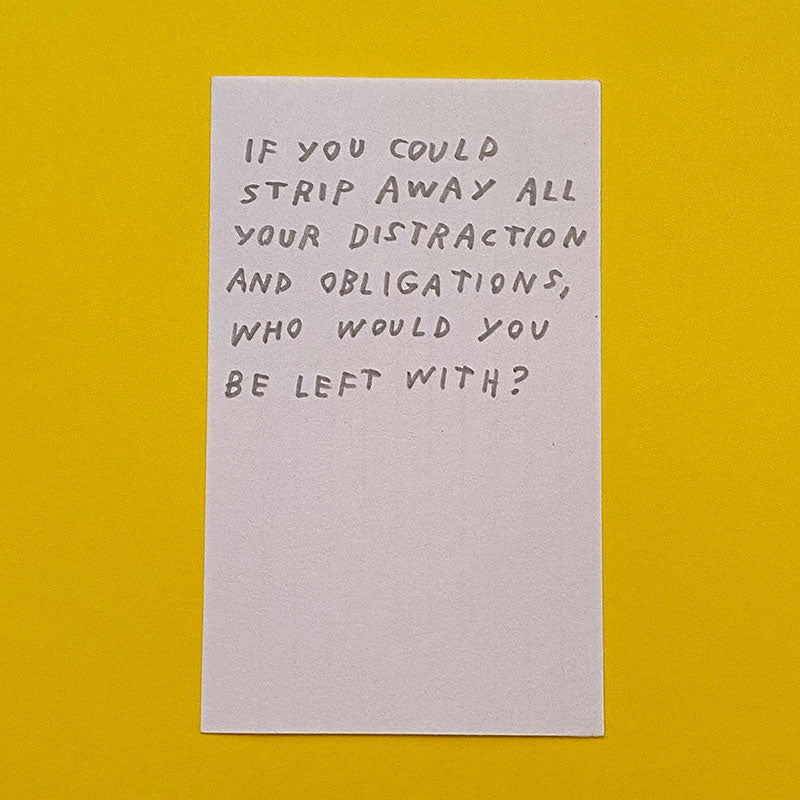 IF YOU COULD
STRIP AWAY ALL
YOUR DISTRACTION
AND OBLIGATIONS,
WHO WOULD YOU
BE LEFT WITH?